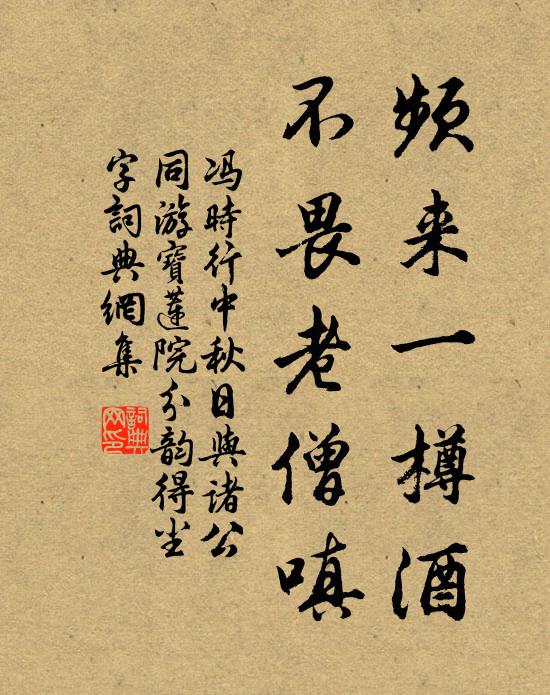 頻来一樽酒
不畏老僧嗔
冯時行中秋日與諸公
同游寶蓮院分韵得尘
字詞典網集
詞典
网印